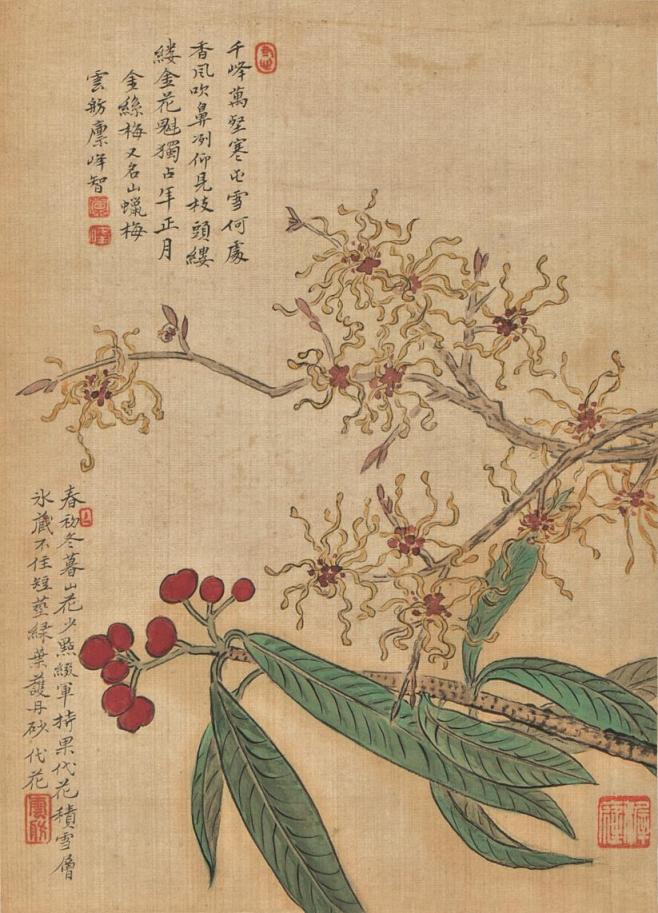 千峰萬壑寒屯雪何處
香风吹鼻冽仰見枝頭縷
縷金花魁獨占年正月
金絲梅又名山蠟梅
雲舫廪峰智
春初冬暮山花少點綴軍持果代花積雪僧
氷藏不住短莖緑葉護丹砂 代花